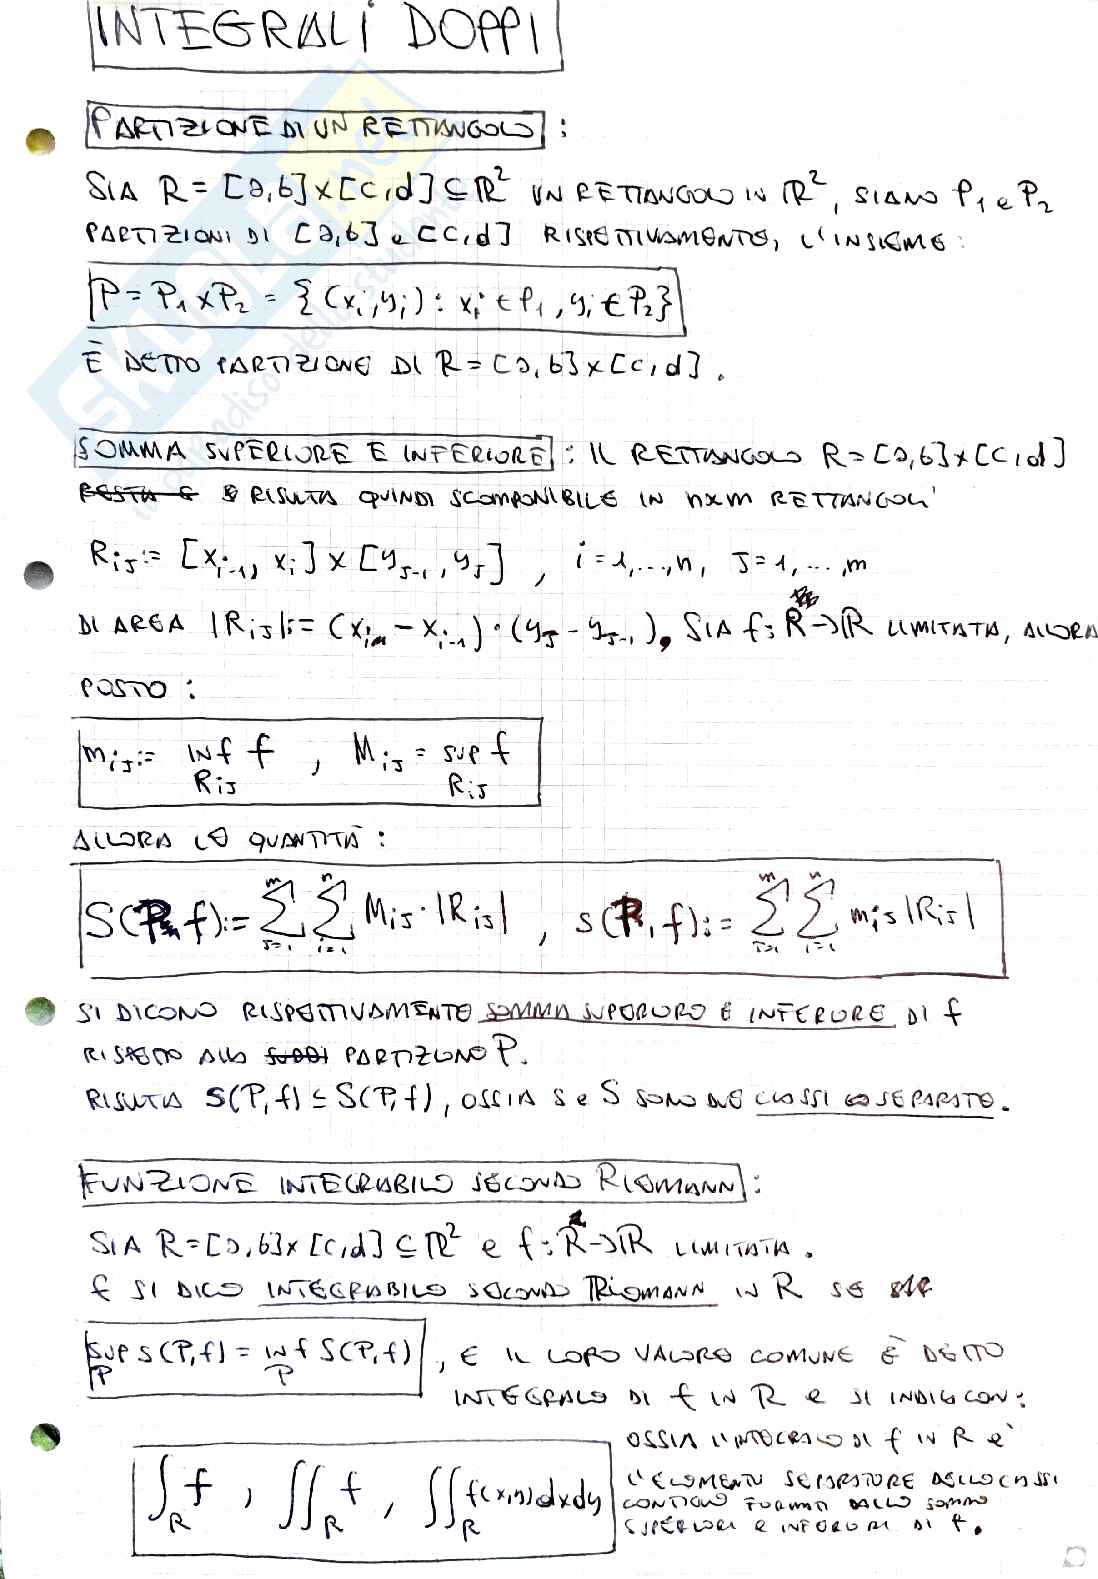 INTEGRALI DOPPI
PARTIZIONE DI UN RETTANGOLO :
SIA R = [a,b]×[c,d] ⊆ ℝ² UN RETTANGOLO IN ℝ², SIANO P₁ e P₂
PARTIZIONI DI [a,b] e [c,d] RISPETTIVAMENTE, L'INSIEME:
P = P₁×P₂ = {(xᵢ,yⱼ) : xᵢ ∈ P₁, yⱼ ∈ P₂}
È DETTO PARTIZIONE DI R = [a,b]×[c,d].
SOMMA SUPERIORE E INFERIORE : IL RETTANGOLO R = [a,b]×[c,d]
RISULTA QUINDI SCOMPONIBILE IN n×m RETTANGOLI
Rᵢⱼ := [xᵢ₋₁, xᵢ] × [yⱼ₋₁, yⱼ] , i=1,...,n, J=1,...,m
DI AREA |Rᵢⱼ| := (xᵢ - xᵢ₋₁)·(yⱼ - yⱼ₋₁). SIA f: R→ℝ LIMITATA, ALLORA
POSTO :
mᵢⱼ := INF f , Mᵢⱼ = SUP f
Rᵢⱼ Rᵢⱼ
ALLORA LE QUANTITÀ :
S(P,f) := Σⱼ₌₁ᵐ Σᵢ₌₁ⁿ Mᵢⱼ·|Rᵢⱼ| , s(P,f) := Σⱼ₌₁ᵐ Σᵢ₌₁ⁿ mᵢⱼ|Rᵢⱼ|
SI DICONO RISPETTIVAMENTE SOMMA SUPERIORE E INFERIORE DI f
RISPETTO ALLA PARTIZIONE P.
RISULTA s(P,f) ≤ S(P,f), OSSIA s e S SONO DUE CLASSI SEPARATE.
FUNZIONE INTEGRABILE SECONDO RIEMANN :
SIA R = [a,b]×[c,d] ⊆ ℝ² e f: R→ℝ LIMITATA.
f SI DICE INTEGRABILE SECONDO RIEMANN IN R SE
SUP s(P,f) = INF S(P,f) , E IL LORO VALORE COMUNE È DETTO
P P
INTEGRALE DI f IN R e SI INDICA CON:
∫_R f , ∬_R f , ∬_R f(x,y)dxdy
OSSIA L'INTEGRALE DI f IN R è
L'ELEMENTO SEPARATORE DELLE CLASSI
CONTIGUE FORMATE DALLE SOMME
SUPERIORI E INFERIORI DI f.